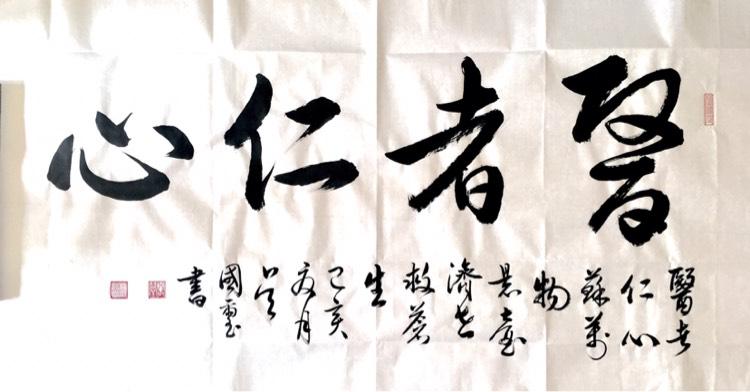 醫者仁心
醫者
仁心
蘇萬
物
懸壺
濟世
救蒼
生
己亥
夏月
國璽
書